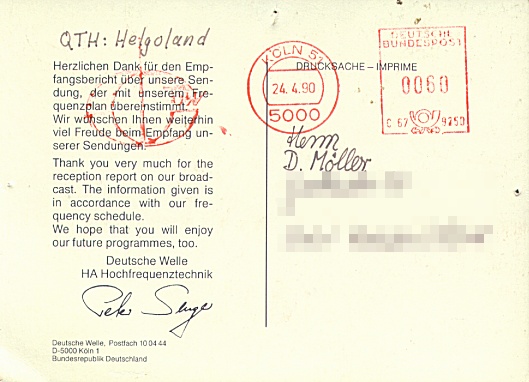 QTH: Helgoland
Herzlichen Dank für den Emp-
fangsbericht über unsere Sen-
dung, der mit unserem Fre-
quenzplan übereinstimmt.
Wir wünschen Ihnen weiterhin
viel Freude beim Empfang un-
serer Sendungen.
Thank you very much for the
reception report on our broad-
cast. The information given is
in accordance with our fre-
quency schedule.
We hope that you will enjoy
our future programmes, too.
Deutsche Welle
HA Hochfrequenztechnik
Peter Senger
Deutsche Welle, Postfach 10 04 44
D-5000 Köln 1
Bundesrepublik Deutschland
KÖLN 51
24.4.90
5000
DRUCKSACHE – IMPRIME
DEUTSCHE
BUNDESPOST
0060
Herrn
D. Möller